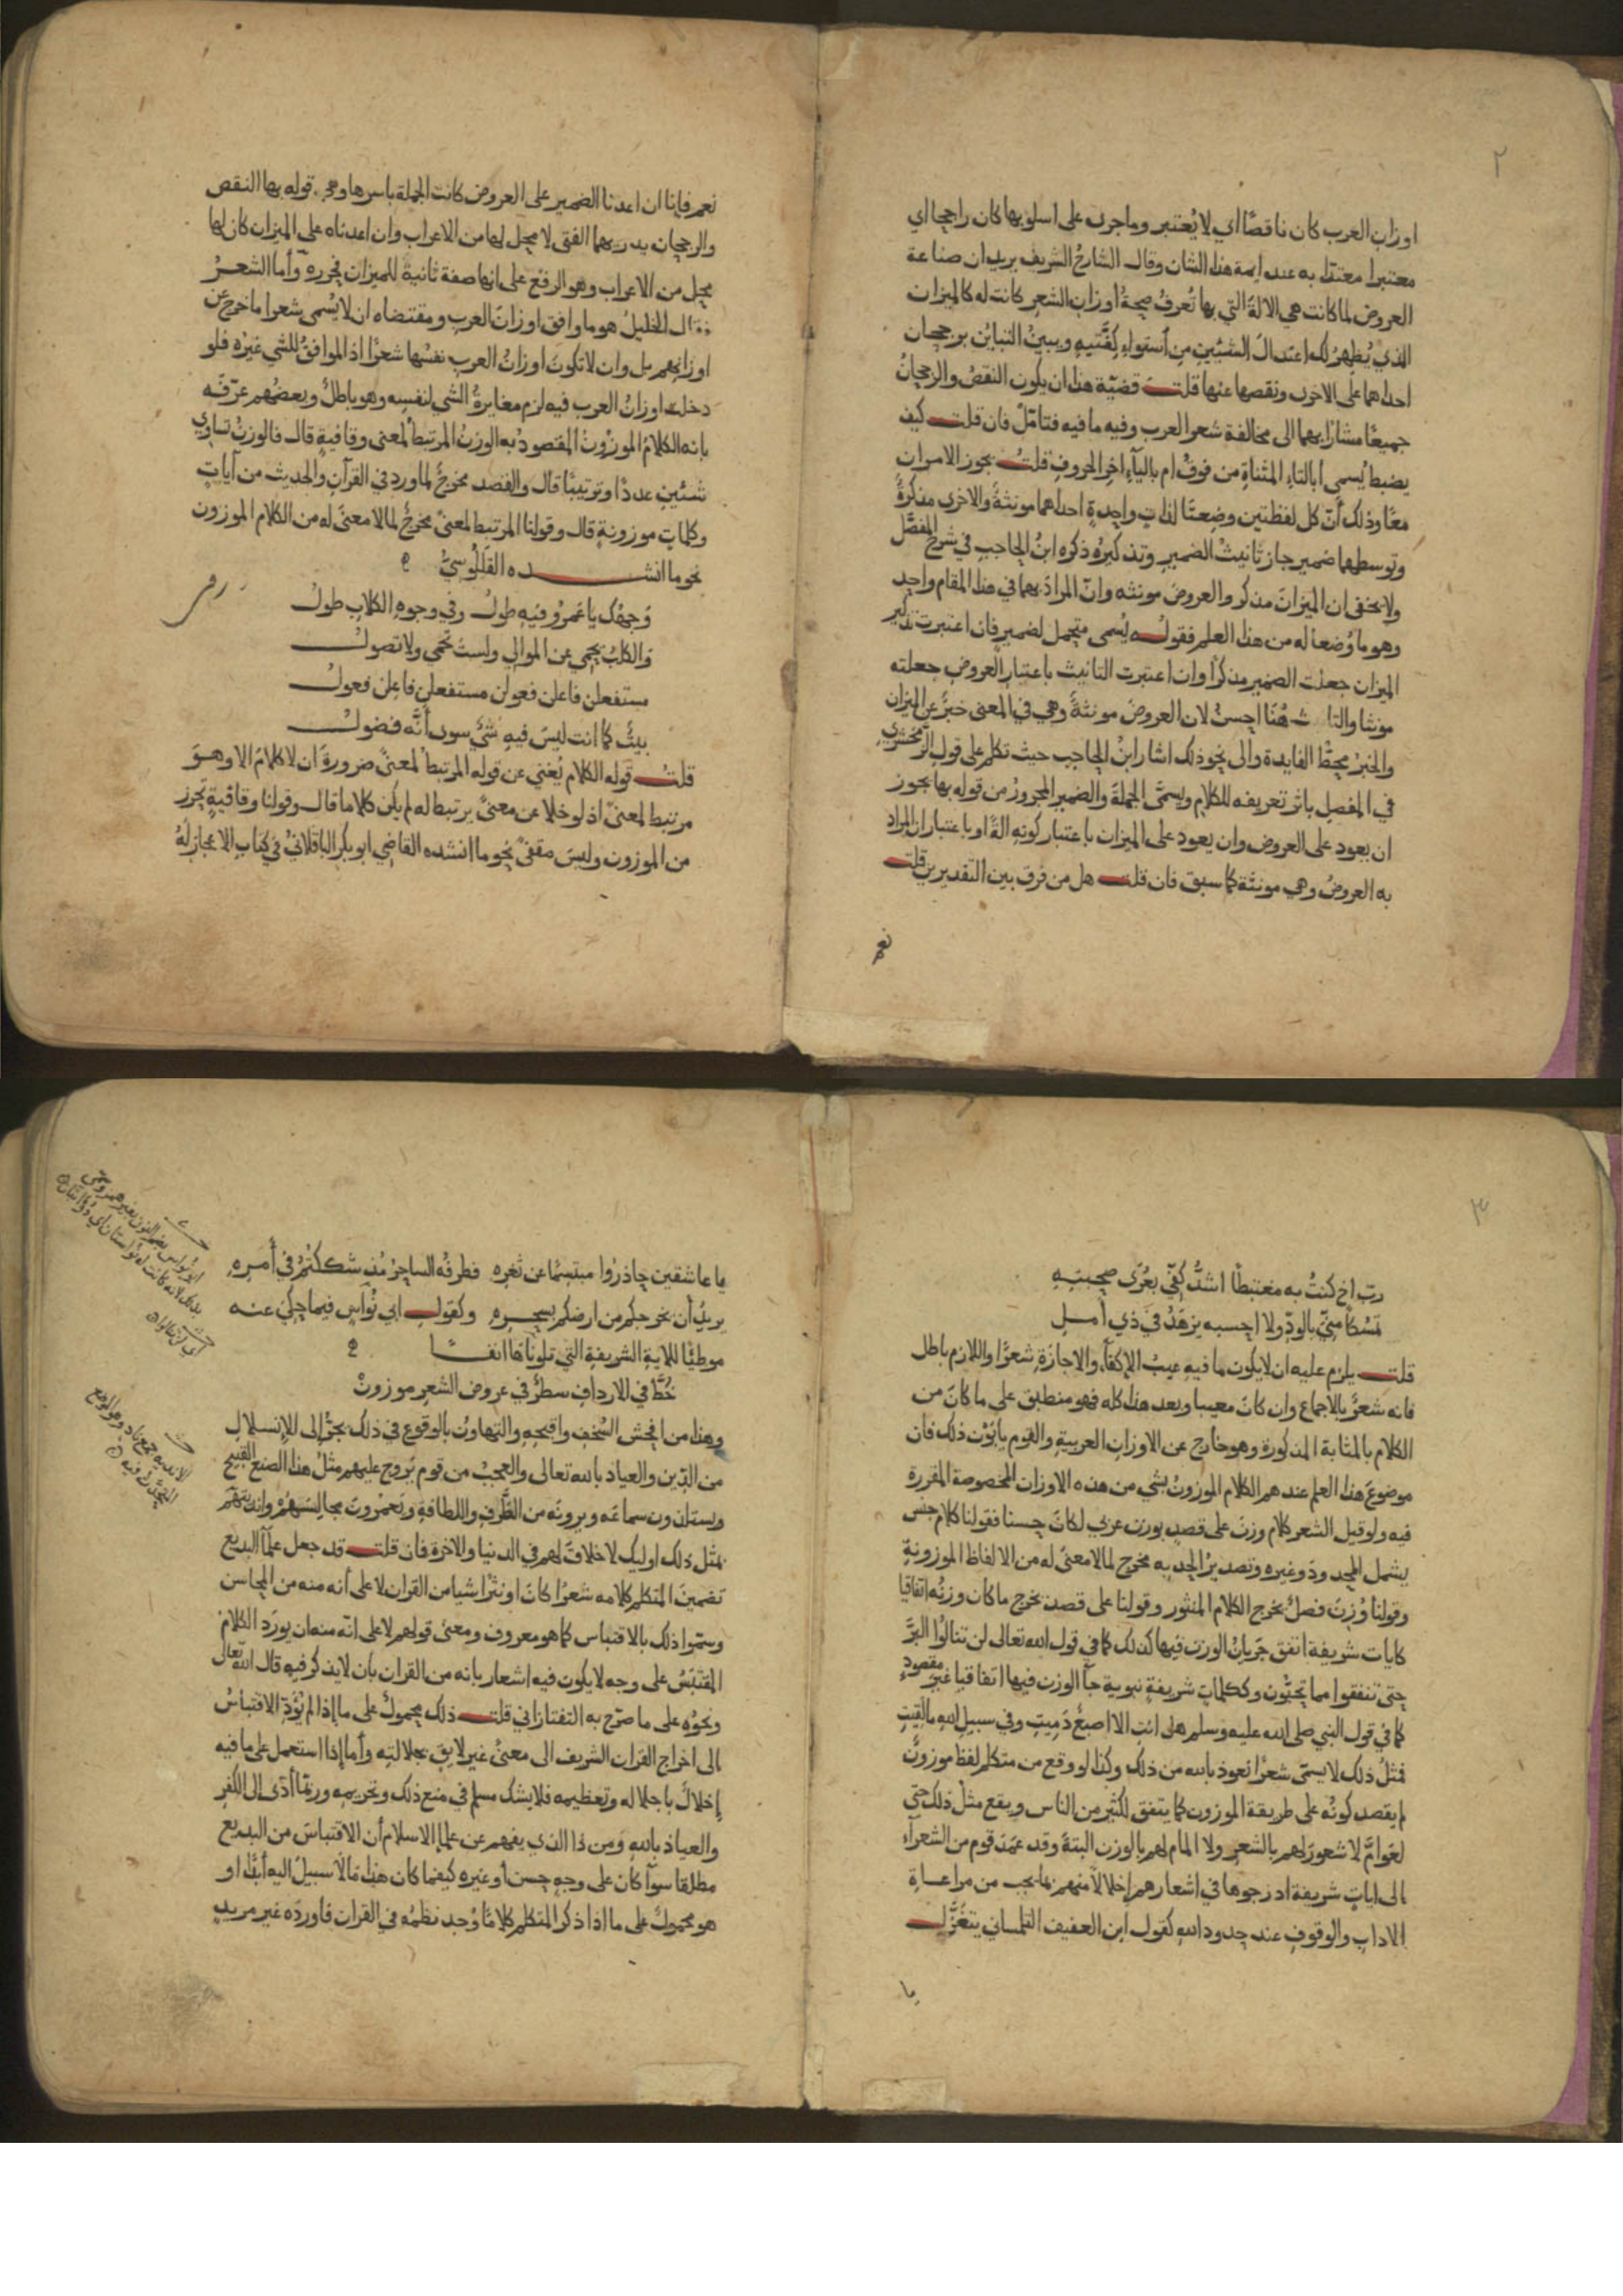 ٢
اوزان العرب كان ناقصًا اي لا يُعتبر وماجرى على اسلوبها كان راجحا اي
معتبرا معتدّا به عند ايمة هذا الشان وقال الشارحُ الشريف يريد ان صناعة
العروض لما كانت هي الالةَ التي بها تُعرفُ صحةُ اوزان الشعر كانت له كالميزان
الذي يُظهِرُ لك اعتدالَ الشيئينِ مِن استواءِ كِفَّتَيهِ ويبينُ التباينَ برجحان
احداهما على الاخرى ونقصها عنها قلت قضيّة هذا ان يكون النقصُ والرجحانُ
جميعًا مشارًا بهما الى مخالفة شعر العرب وفيه ما فيه فتامّل فان قلت كيف
يضبط يُسمى أبالتاءِ المثناةِ من فوقُ ام بالياءِ اخرِ الحروفِ قلتُ يجوز الامران
معًا وذلك أنّ كل لفظتين وضِعتَا لذاتٍ واحِدةٍ احداهما مونثةً والاخرى مذكرةً
وتوسطهما ضمير جاز تانيثُ الضمير وتذكيرُه ذكره ابنُ الحاجبِ في شرح المفصّل
ولا يخفى ان الميزانَ مذكر والعروضَ مونثه وانّ المرادَ بهما في هذا المقام واحد
وهو ما وُضعا له من هذا العلم فقوله يُسمى متحمل لضمير فان اعتبرت تذكير
الميزان جعلت الضمير مذكرًا وان اعتبرت التانيث باعتبار العروضِ جعلته
مونثا والتانيث هُنَا احسنُ لان العروضَ مونثةً وهي في المعنى خبرٌ عن الميزان
والخبرُ محطّ الفايدة والى نحو ذلك اشار ابنُ الحاجب حيث تكلم على قول الزمخشريِ
في المفصل باثر تعريفه للكلام ويسمَّى الجملةَ والضمير المجرورُ من قوله بها يجوز
ان يعود على العروض وان يعود على الميزان باعتبار كونهِ الةً او باعتبار ان المراد
به العروضُ وهي مونثة كما سبق فان قلت هل من فرق بين التقديرين قلت
نعم
نعم فإنا ان اعدنا الضمير على العروض كانت الجملة باسرها وهي قوله بها النقص
والرجحان يدريهما الفتى لا محل لها من الاعراب وان اعدناه على الميزان كان لها
محل من الاعراب وهو الرفع على انها صفة ثانية للميزان فحرره وأما الشعرُ
فقال الخليلُ هو ما وافق اوزانَ العربِ ومقتضاه ان لا يُسمى شعرا ما خرج عن
اوزانهم بل وان لا تكونَ اوزانُ العرب نفسُها شعرًا اذ الموافقُ للشي غيرُه فلو
دخلت اوزانُ العرب فيه لزم مغايرةُ الشي لنفسِه وهو باطلٌ وبعضُهم عرّفَه
بانه الكلامُ الموزُونُ المقصودُ به الوزنُ المرتبطُ لمعنى وقافيةٍ قال فالوزنُ تساوي
شيئينِ عددًا وترتيبًا قال والقصد مخرجٌ لما ورد في القرآنِ والحديث من آياتٍ
وكلماتٍ موزونةٍ قال وقولنا المرتبط لمعنىً مخرجٌ لما لا معنى له من الكلام الموزون
نحو ما انشده القَللُوسِيُّ
وَجهُك يا عَمرُو فيهِ طولُ وفي وجوهِ الكلابِ طولُ
والكلبُ يَحمِي عن الموالي ولستَ تَحمي ولا تصولُ
مستفعلن فاعلن فعولن مستفعلن فاعلن فعولُ
بيتٌ كما انت ليسَ فيهِ شيٌ سوى أنَّه فضولُ
قلتُ قوله الكلام يُغني عن قوله المرتبطُ لمعنىً ضرورةَ ان لا كلامَ الا وهوَ
مرتبط لمعنىً اذ لو خلا عن معنىً يرتبط له لم يكن كلاما قال وقولنا وقافيةٍ تحرز
من الموزون وليسَ مقفىً نحو ما انشده القاضي ابو بكرِ الباقلانيُّ في كتابِ الاعجاز لَهُ
٣
ربّ اخٍ كنتُ به مغتبطًا اشدُّ كفّي بعُرَى صحبتِهِ
تمسّكًا منّي بالودّ ولا احسبه يزهَدُ في ذي أملِ
قلت يلزم عليه ان لا يكون ما فيه عيبُ الاكفاءِ والاجازَةِ شعرًا واللازم باطل
فانه شعرٌ بالاجماع وان كان معيبا وبعد هذا كله فهو منطبق على ما كانَ من
الكلام بالمثابة المذكورة وهو خارج عن الاوزانِ العربيةِ والقوم يأبَوْن ذلك فان
موضوعَ هذا العلم عندهم الكلام الموزونُ بشي من هذه الاوزان المخصوصة المقررة
فيه ولو قيل الشعر كلام وزنَ على قصدٍ بوزن عربي لكانَ حسنا فقولنا كلام جنس
يشمل المحدودَ وغيره وتصديرُ الحد به مخرج لما لا معنىً له من الالفاظ الموزونةِ
وقولنا وُزِنَ فصلٌ يخرج الكلام المنثور وقولنا على قصد يخرج ما كان وزنُه اتفاقيا
كايات شريفة اتفق جَريانُ الوزن فيها كذلك كما في قول الله تعالى لن تنالُوا البرَّ
حتى تنفقوا مما تحبّون وككلماتٍ شريفةٍ نبوية جآ الوزن فيها اتفاقيا غيرَ مقصودٍ
كما في قول النبي صلى الله عليه وسلم هل انتِ الا اصبعٌ دَمِيتِ وفي سبيل اللهِ ما لقيتِ
فمثلُ ذلك لا يسمّى شعرًا نعوذ بالله من ذلك وكذا لو وقع من متكلم لفظ موزونٌ
لم يقصد كونُه على طريقة الموزون كما يتفق لكثير من الناس ويقع مثل ذلك حتى
لعَوامَّ لا شعورَ لهم بالشعرِ ولا المام لهم بالوزن البتةَ وقد عمَدَ قوم من الشعرآءِ
الى اياتٍ شريفة ادرجوها في اشعارهم إخلالًا منهم بما يجب من مراعاةِ
الادابِ والوقوفِ عند حدود اللهِ كقول ابن العفيف التلمساني يتغَزَّلُ
يا
يا عاشقين حاذرُوا مبتسِمًا عن ثغرِه فطرفُه الساحِرُ مُذ شككتُمْ في أمرِهِ
يريدُ أن يخرجكم من ارضكم بسحرِهِ وكقول ابي نُواسٍ فيما حكي عنه
موطيًا للايةِ الشريفةِ التي تلوناها انفًا
خُطَّ في الاردافِ سطرٌ في عروض الشعرِ موزونْ
وهذا من افحش السُخفِ واقبحِهِ والتهاونُ بالوقوع في ذلك يجرُّ إلى الانسلالِ
من الدّين والعياذ بالله تعالى والعجبُ من قوم يَروج عليهم مثلُ هذا الصنع القبيح
ويستلذون سماعَه ويرونَه من الظَّرفِ واللطافةِ ويَعمرونَ مجالِسَهُمْ وانديتَهُمْ
بمثل ذلك اوليك لا خلاقَ لهم في الدنيا والاخرة فان قلت قد جعل علمآ البديع
تضمينَ المتكلم كلامَه شعرًا كانَ او نثرًا شيا من القران لا على أنه منه من المحاسن
وسمّوا ذلك بالاقتباس كما هو معروف ومعنى قولهم لا على انّه منه ان يورَد الكلامُ
المقتبَسُ على وجه لا يكون فيه اشعار بانه من القران بأن لا يذكر فيه قال الله تعالى
ونحوُه على ما صرّح به التفتازاني قلت ذلك محمولٌ على ما إذا لم يُؤَدّ الاقتباسُ
الى اخراج القران الشريف الى معنىً غير لايق بجلالتِه وأما إذا استعمل على ما فيه
إخلالٌ باجلاله وتعظيمه فلا يشك مسلم في منع ذلك وتحريمه وربّما أدّى إلى الكفرِ
والعياذ باللهِ ومن ذا الذي يفهم عن علمآ الاسلام أن الاقتباسَ من البديع
مطلقا سوآ كان على وجهٍ حسن أو غيره كيفما كان هذا مالا سبيلَ اليه أبدًا او
هو محمولٌ على ما اذا ذكر المتكلم كلامًا وُجد نظمُه في القران فأورَده غير مريدٍ